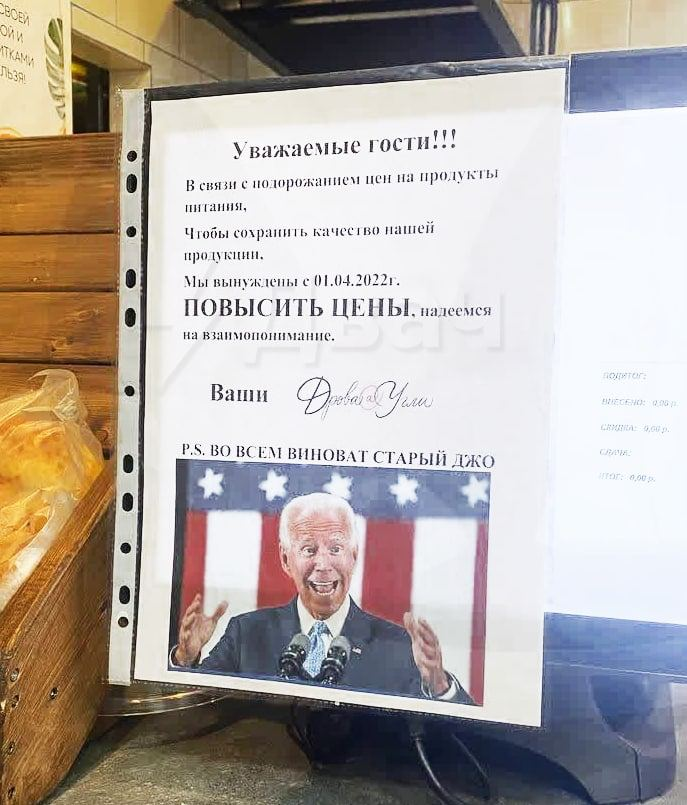 СВОЕЙ
ОЙ И
ИТКАМИ
ЛЬЗЯ!
Уважаемые гости!!!
В связи с подорожанием цен на продукты
питания,
Чтобы сохранить качество нашей
продукции,
Мы вынуждены с 01.04.2022г.
ПОВЫСИТЬ ЦЕНЫ, надеемся
на взаимопонимание.
Двач
Ваши Дрова @ Угли
P.S. ВО ВСЕМ ВИНОВАТ СТАРЫЙ ДЖО
ПОДЫТОГ:
ВНЕСЕНО: 0,00 р.
СКИДКА: 0,00 р.
СДАЧА:
ИТОГ: 0,00 р.